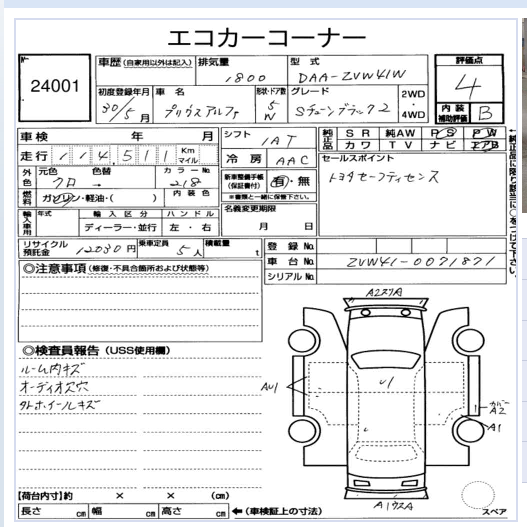 エコカーコーナー
No 24001
車歴 (自家用以外は記入) 排気量 1800 型式 DAA-ZVW41W
初度登録年月 30/5月 車名 プリウスアルファ 形状・ドア数 5 W グレード Sチューンブラック2 2WD・4WD
評価点 4
内装補助評価 B
車検 年 月
走行 114,511 Km マイル
外色 元色 クロ 色替 カラーNo. 218
燃料 ガソリン・軽油・( ) 内装色
輸入車用 年式 輸入区分 ディーラー・並行 ハンドル 左・右
リサイクル預託金 12030円 乗車定員 5人 積載量 t
シフト IAT
冷房 AAC
新車整備手帳(保証書付) 有・無
※書類と一緒に保管下さい。
名義変更期限 月 日
純正品 SR 純AW PS PW
カワ TV ナビ エアB
セールスポイント
トヨタセーフティセンス
←純正品に限り該当に○をつけて下さい。
登録No.
車台No. ZVW41-0071871
シリアルNo.
◎注意事項 (修復・不具合箇所および状態等)
◎検査員報告 (USS使用欄)
ルーム内キズ
オーディオス穴
外ホイールキズ
A2スリA
AU1
U1
カバーA2
A1
A1ウスA
スペア
【荷台内寸】約 × × (cm)
長さ cm 幅 cm 高さ cm ←(車検証上の寸法)